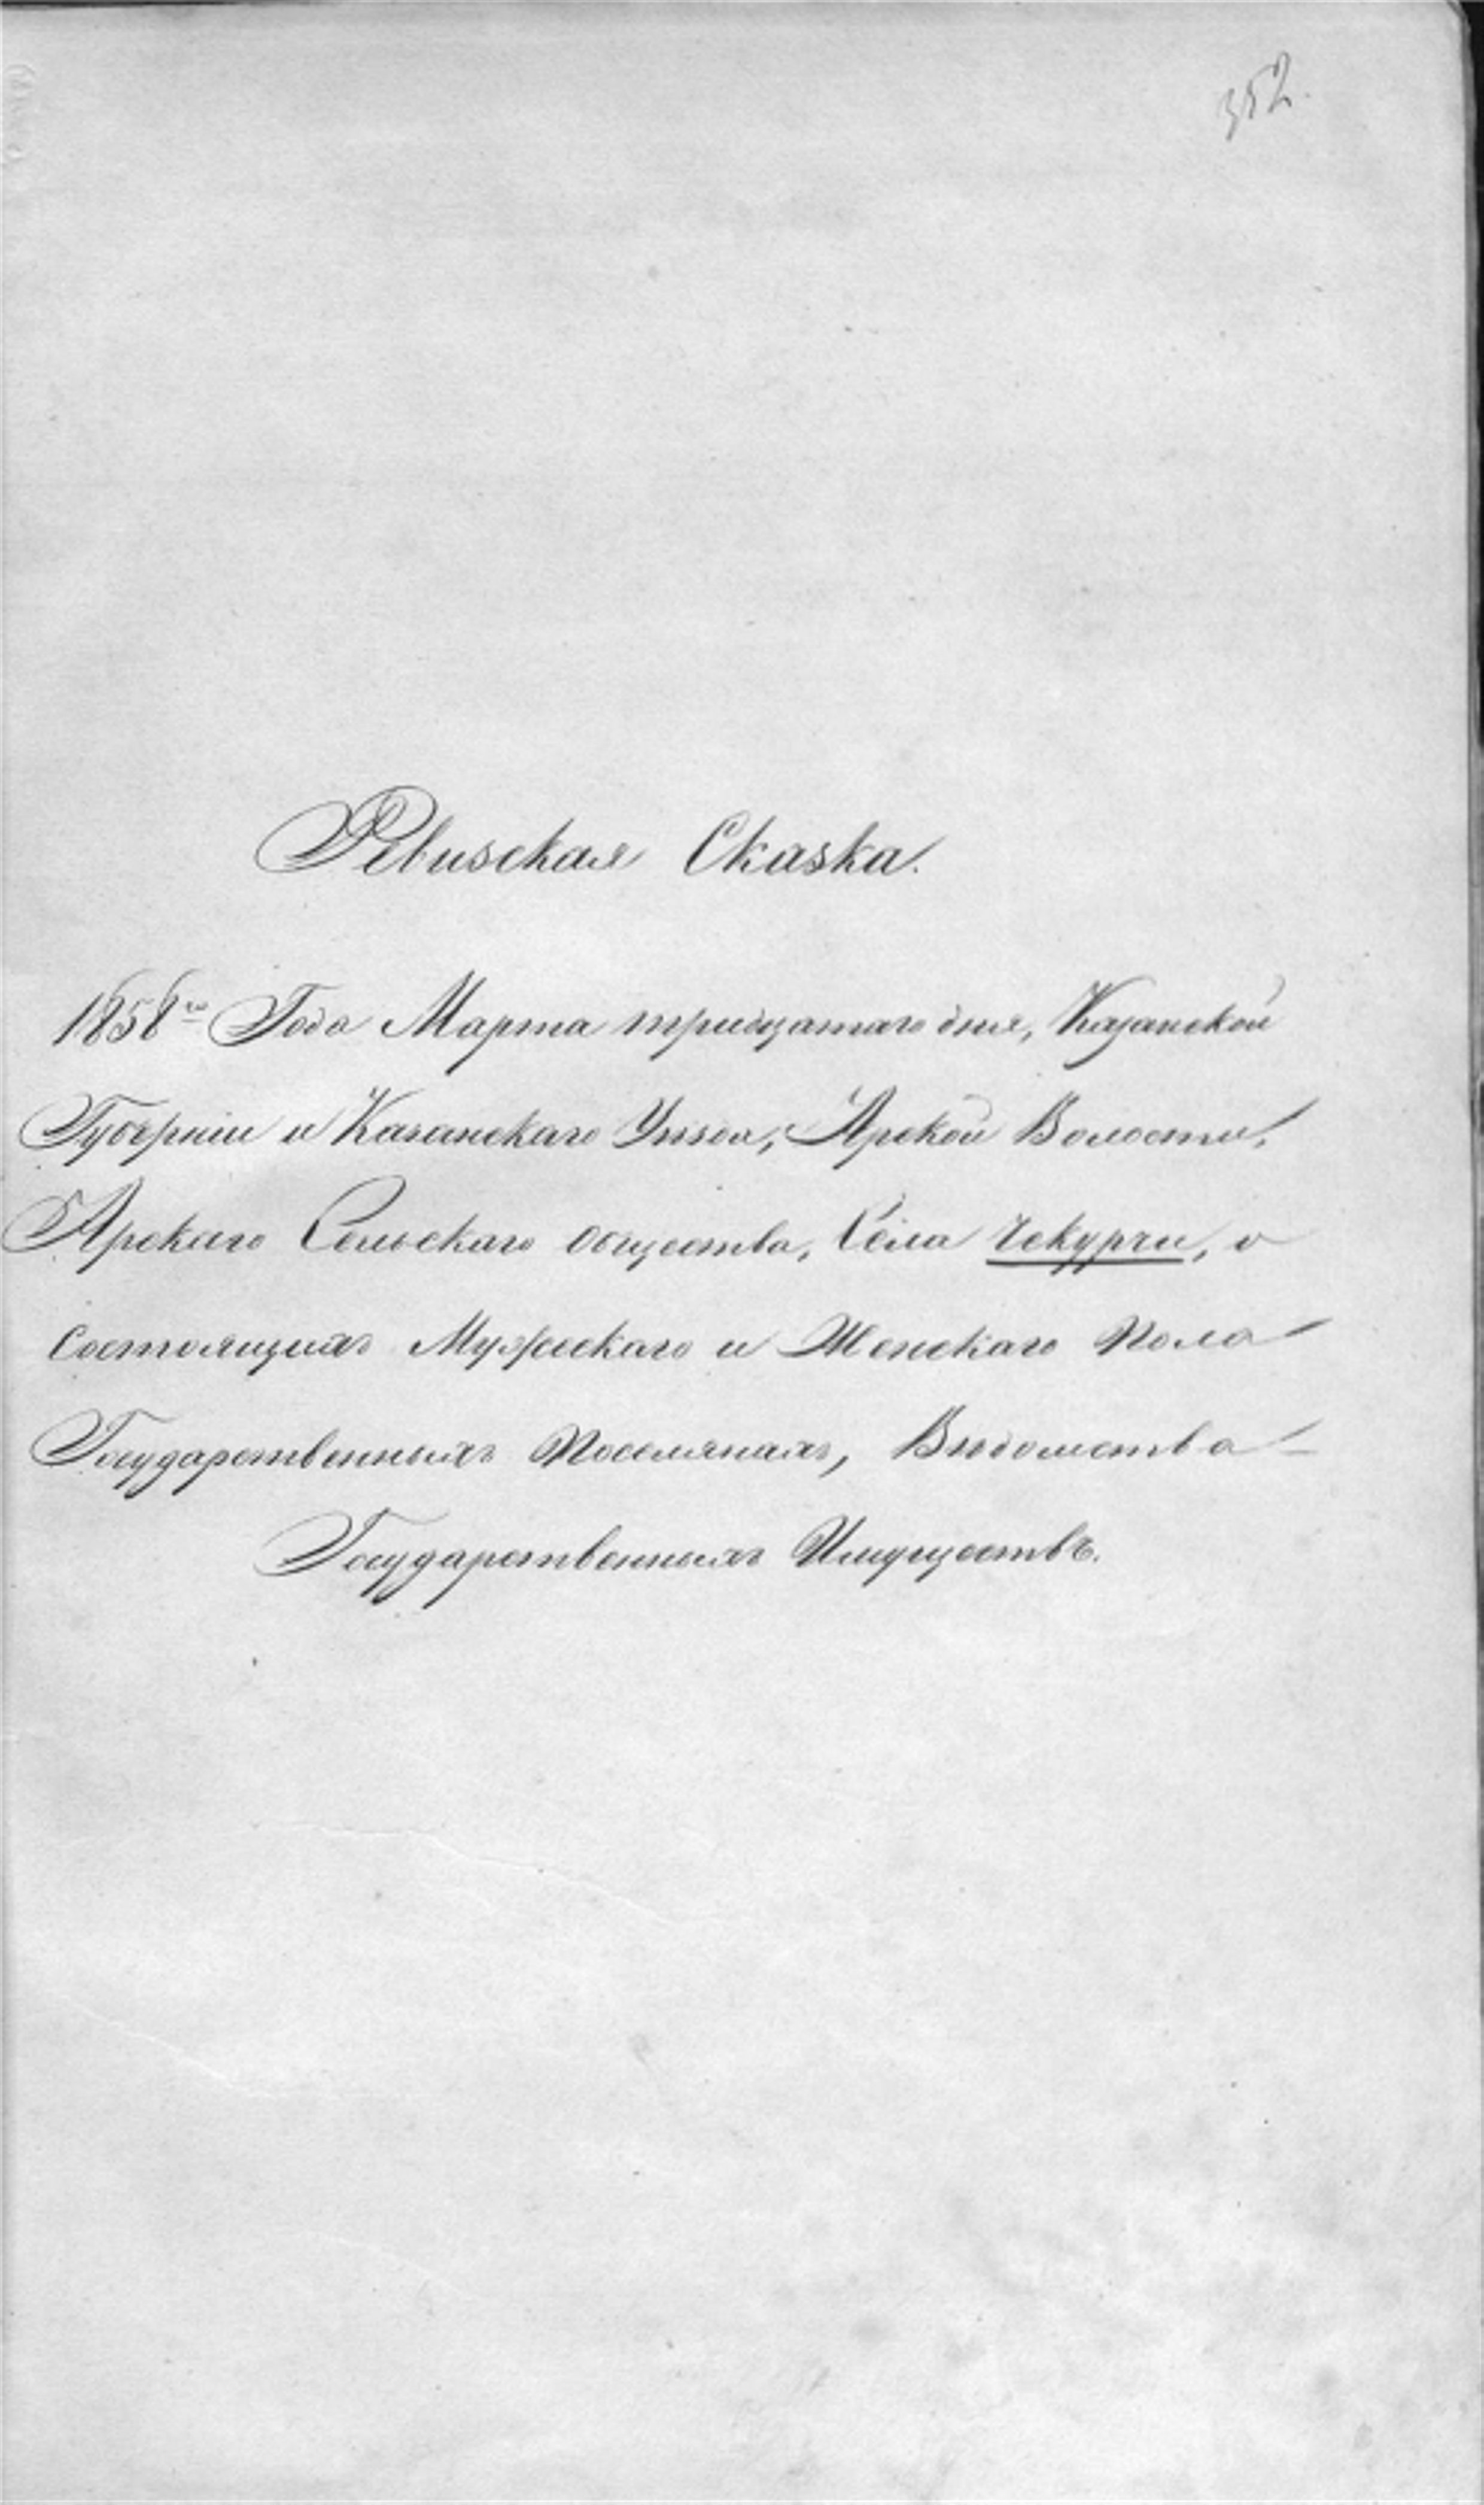 352.
Ревизская Сказка.
1858го Года Марта тридцатаго дня, Казанской
Губерніи и Казанскаго Уѣзда, Арской Волости,
Арскаго Сельскаго общества, Села Чекурчи, о
состоящихъ Мужескаго и Женскаго пола
Государственныхъ поселянахъ, Вѣдомства
Государственныхъ Имуществъ.